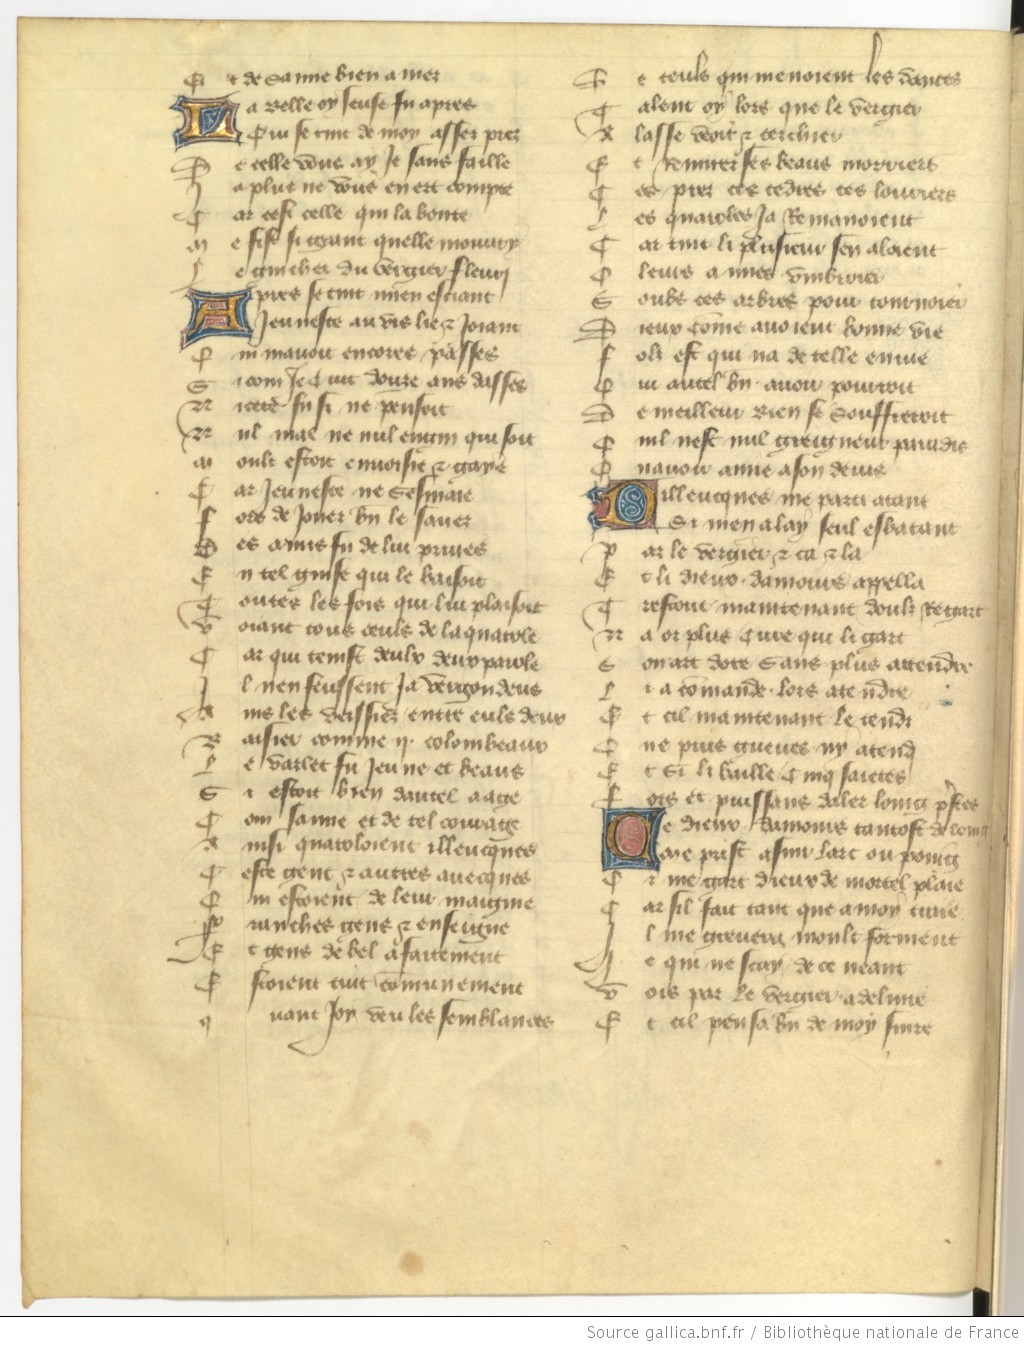 Et de sa mie bien amer
La belle oyseuse fu apres
Qui se tint de moy asses pres
De celle vous ay Je sans faille
Ja plus ne vous en ert compte
Car cest celle qui la bonte
Me fist si grant quelle mouvry
Le guichet du vergier fleury
Apres se tint mien esciant
Jeunesce au vis lie & Joiant
Qui navoit encores passes
Si com Je Cuit douze ans dasses
Nicete fu si ne pensoit
Nul mal ne nul engin qui soit
Moult estoit envoisie & gaye
Car Jeunesce ne sesmaie
Fors de Jouer bn le saver
Ses amis fu de lui prives
En tel guise qui le baisoit
Toutes les fois qui lui plaisoit
Voiant tous ceuls de la quarole
Car qui tenist deulx deux parole
Il nen feussent Ja vergondeus
Ains les veissiez entre euls deux
Baisier comme ij. colombeaux
Le varlet fu Jeune et beaus
Si estoit bien dautel aage
Com sa mie et de tel courage
Ainsi quaroloient illeucques
Ceste gent & autres avecques
Qui estoient de leur maignie
Franches gens & enseignie
Et gens de bel afaitement
Estoient tuit communement
Quant Joy veu les semblances
De ceuls qui menoient les dances
Talent oy lors que le vergier
Alasse veoir & cerchier
Et remirer ses beaus morriers
Ces pins ces cedres ces loriers
Les quaroles Ja Remanoient
Car tuit li plusieur sen aloient
O leurs amies umbroier
Soubz ces arbres pour tournoier
Dieux come avoient bonne vie
Fols est qui na de telle envie
Qui autel bn avoir pourroit
De meilleur Rien se souffreroit
Qui nest nul greigneur paradis
Quavoir amie a son devis
Dilleucques me parti atant
Si men alay seul esbatant
Par le vergier & ca & la
Et li dieux damours appella
Trestout maintenant douls Regart
Na or plus Cure qui li gart
Son arc dore sans plus attendre
Li a comande lors atendre
Et cil maintenant le tendi
Que puis gueres ny atendi
Et si li bailla Cinq saietes
Fors et puissans daler loing prestes
Le dieux damours tantost de loing
Me prist a suir larc ou poing
Or me gart dieux de mortel plaie
Car sil fait tant que a moy traie
Il me grevera moult forment
Je qui ne scay de ce neant
Vois par le vergier a delivre
Et cil pensa bn de moy suire
Source gallica.bnf.fr / Bibliothèque nationale de France